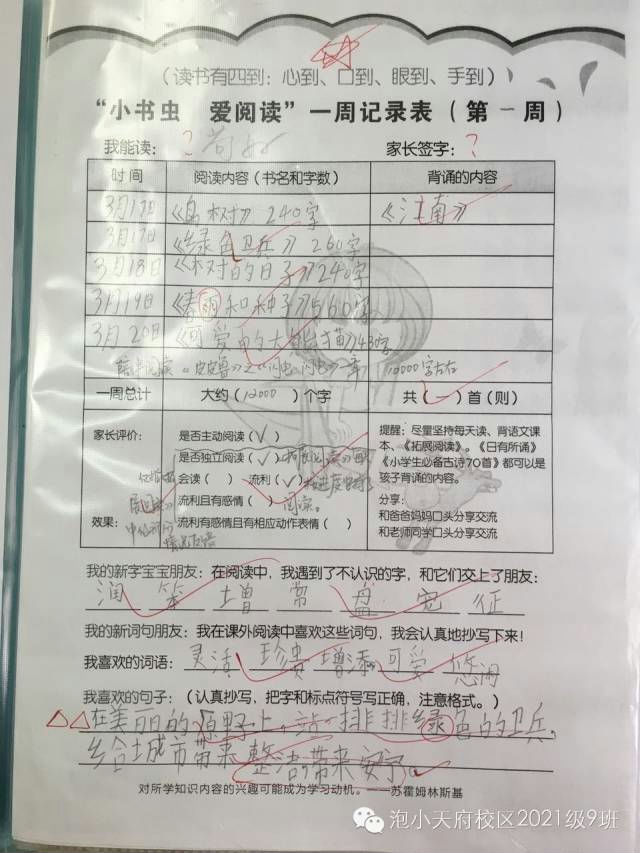 （读书有四到：心到、口到、眼到、手到）
“小书虫 爱阅读”一周记录表（第一周）
我能读： ? 家长签字：?
时间 阅读内容（书名和字数） 背诵的内容
3月17日 《 树》240字 《江南》
3月17日 《绿色卫兵》260字
3月18日 《树的日子》240字
3月19日 《春雨和种子》560字
3月20日 《可爱的大熊猫》143字
12000字左右
一周总计 大约（12000）个字 共（一）首（则）
家长评价：
是否主动阅读（√）
是否独立阅读（√）
会读（ ） 流利（√）
流利且有感情（ ） 阅读。
效果： 流利有感情且有相应动作表情（ ）
提醒：尽量坚持每天读、背语文课
本、《拓展阅读》。《日有所诵》
《小学生必备古诗70首》都可以是
孩子背诵的内容。
分享：
和爸爸妈妈口头分享交流
和老师同学口头分享交流
我的新字宝宝朋友：在阅读中，我遇到了不认识的字，和它们交上了朋友：
润 笨 增 常 盘 宽 征
我的新词句朋友：我在课外阅读中喜欢这些词句，我会认真地抄写下来！
我喜欢的词语：灵活 珍贵 增添 可爱 悠闲
我喜欢的句子：（认真抄写，把字和标点符号写正确，注意格式。）
在美丽的原野上，站一排排绿色的卫兵，
给城市带来整洁，带来安宁。
对所学知识内容的兴趣可能成为学习动机。——苏霍姆林斯基
泡小天府校区2021级9班